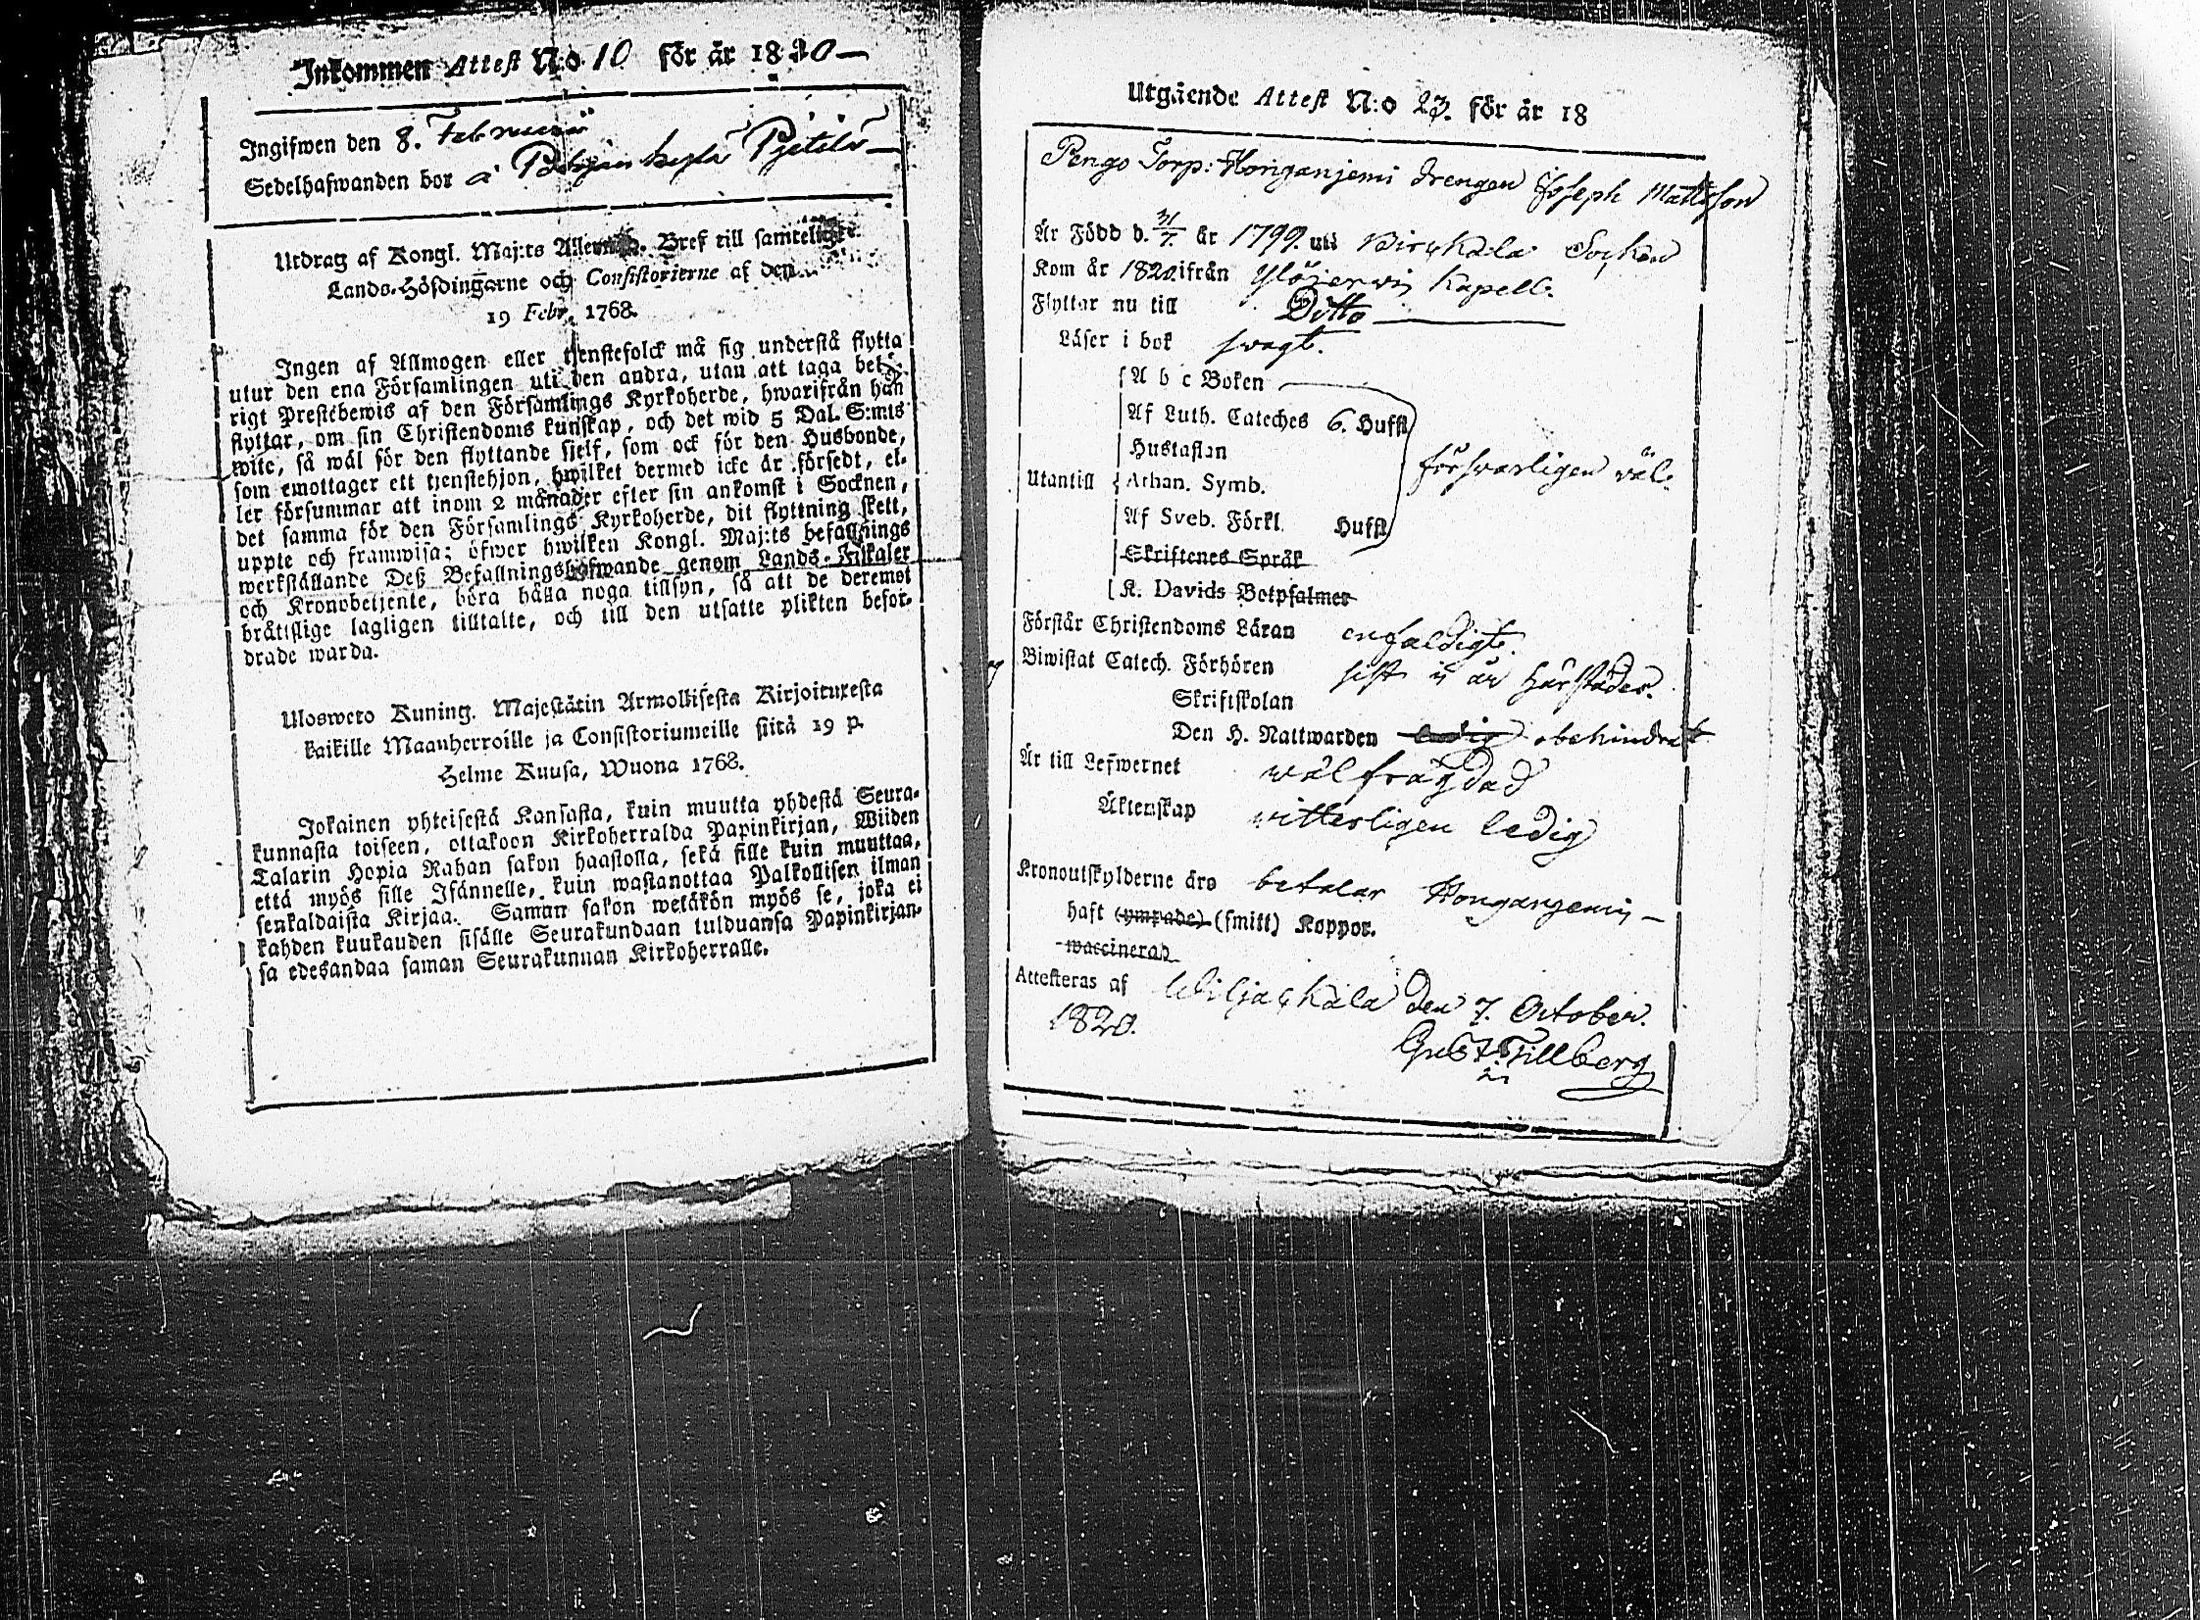 Inkommen Attest N:o 10 för år 1820 —
Ingifwen den 8. Februarii
Sedelhafwanden bor å Pohjankylä Pjetilä —
Utdrag af Kongl. Maj:ts Bref till samtelige
Lands-Höfdingarne och Consistorierne af den
19 Febr. 1768.
Ingen af Allmogen eller tjenstefolck må sig understå flytta
utur den ena Församlingen uti den andra, utan att taga behö-
rigt Prestebewis af den Församlings Kyrkoherde, hwarifrån han
flyttar, om sin Christendoms kunskap, och det wid 5 Dal. S:mts
wite, så wäl för den flyttande sjelf, som ock för den Husbonde,
som emottager ett tjenstehjon, hwilket dermed icke är försedt, el-
ler försummar att inom 2 månader efter sin ankomst i Socknen,
det samma för den Församlings Kyrkoherde, dit flyttning skett,
uppte och framwisa; öfwer hwilken Kongl. Maj:ts befallnings
werkställande Deß Befallningshafwande genom Lands-Fiskaler
och Kronobetjente, böra hålla noga tillsyn, så att de deremot
bråttslige lagligen tilltalte, och till den utsatte plikten befor-
drade warda.
Ulosweto Kuning. Majestätin Armollisesta Kirjoituxesta
kaikille Maanherroille ja Consistoriumeille siitä 19 p.
Helme Kuusa, Wuona 1768.
Jokainen yhteisestä Kansasta, kuin muutta yhdestä Seura-
kunnasta toiseen, ottakoon Kirkoherralda Papinkirjan, Wiiden
Talarin Hopia Rahan sakon haastolla, sekä sille kuin muuttaa,
että myös sille Isännelle, kuin wastanottaa Palkollisen ilman
senkaldaista Kirjaa. Saman sakon wetäkön myös se, joka ei
kahden kuukauden sisälle Seurakundaan tulduansa Papinkirjan-
sa edesandaa saman Seurakunnan Kirkoherralle.
Utgående Attest N:o 23. för år 18
Pengo Torp: Honganjemi Drengen Joseph Mattsson
Är Född d. 31/7. år 1799. uti Birckala Socken
Kom år 1820. ifrån Ylöjerwi Kapell.
Flyttar nu till Ditto
Läser i bok swagt.
A b c Boken
Af Luth. Cateches 6. Huffst
Hustaflan
Utantill Athan. Symb. försvarligen väl.
Af Sveb. Förkl. Huffst
Skriftenes Språk
K. Davids Botpsalmer
Förstår Christendoms Läran enfaldigt.
Biwistat Catech. Förhören sist i år härstädes.
Skriftskolan
Den H. Nattwarden ledig obehindrat
Är till Lefwernet wälfrägdad
Äktenskap witterligen ledig
Kronoutskylderne äro betalar Honganjemi —
haft (ympade) (smitt) Koppor.
waccinerad
Attesteras af Wiljackala den 7. October.
1820.
Gust. Tillberg